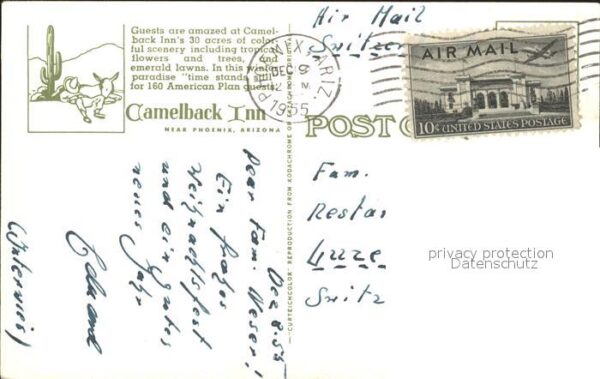 Guests are amazed at Camel-
back Inn's 30 acres of color-
ful scenery including tropical
flowers and trees, and
emerald lawns. In this winter
paradise "time stands still"
for 160 American Plan guests.
Camelback Inn
NEAR PHOENIX, ARIZONA
Dec 8. 55
Dear Fam. Weser!
Ein frohes
Weihnachtsfest
und ein gutes
neues Jahr
"CURTEICHCOLOR" REPRODUCTION FROM KODACHROME OR EKTACHROME ORIGINAL
Air Mail
PHOENIX, ARIZ.
DEC 9
1955
AIR MAIL
10¢ UNITED STATES POSTAGE
POST C
Fam.
Luze
Switz
privacy protection
Datenschutz